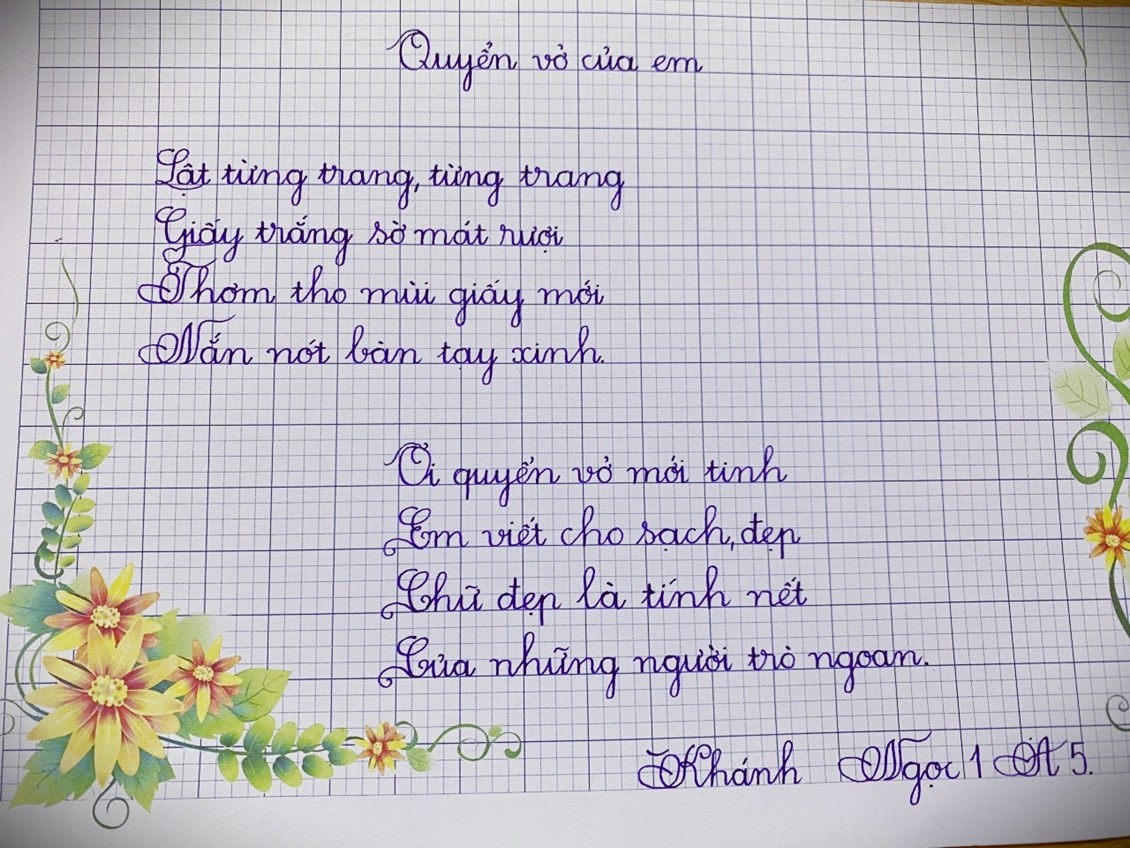 Quyển vở của em
Lật từng trang, từng trang
Giấy trắng sờ mát rượi
Thơm tho mùi giấy mới
Nắn nót bàn tay xinh.
Ơi quyển vở mới tinh
Em viết cho sạch, đẹp
Chữ đẹp là tính nết
Của những người trò ngoan.
Khánh Ngọc 1 A 5.